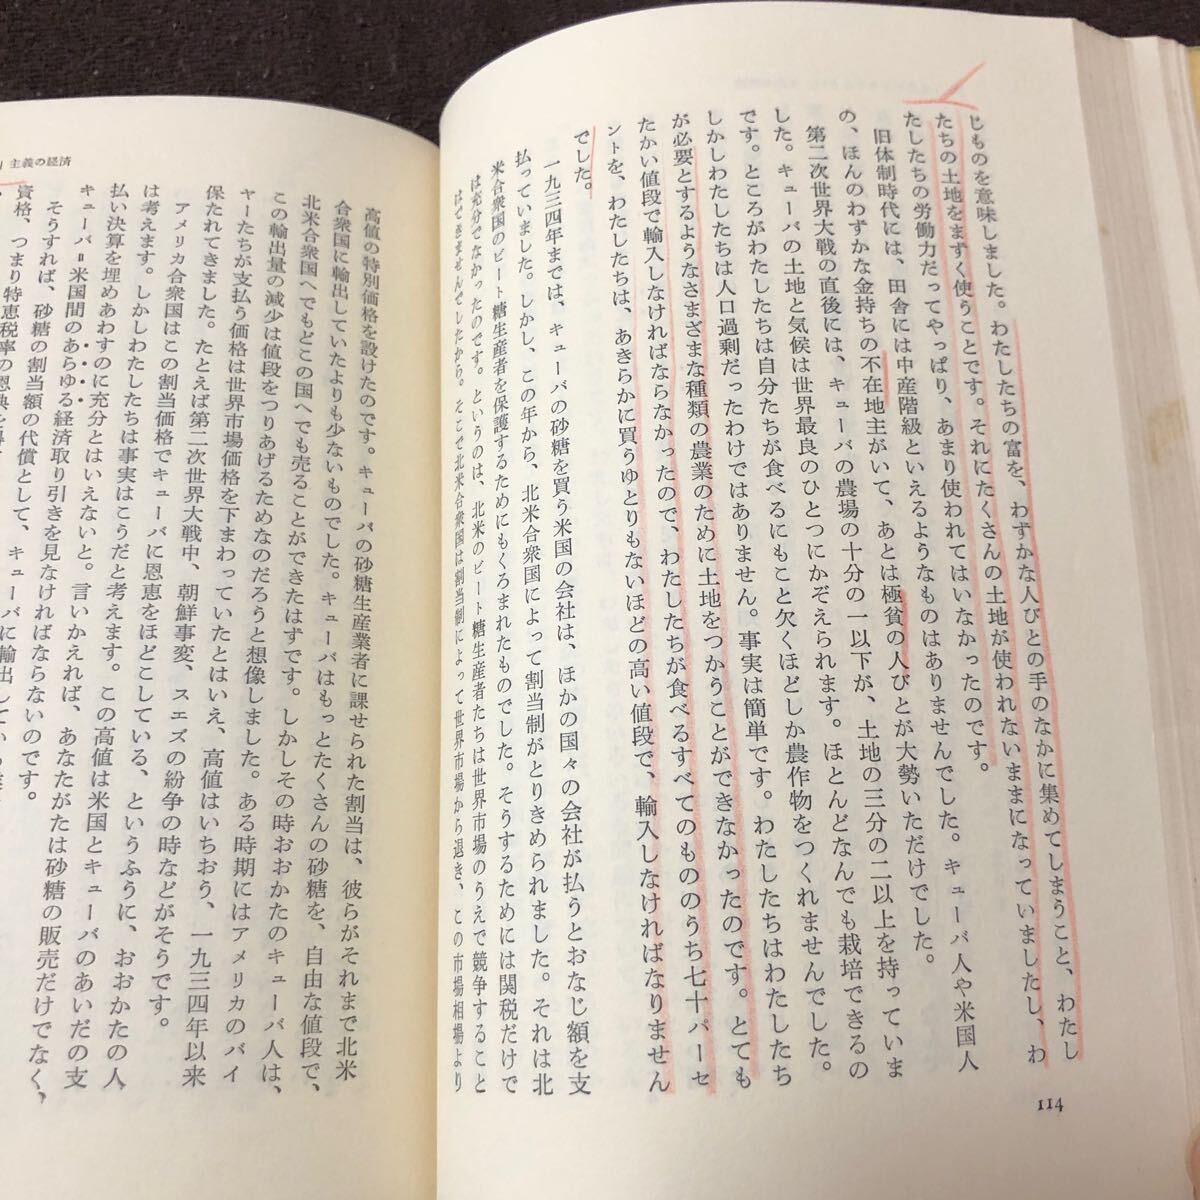 じものを意味しました。わたしたちの富を、わずかな人びとの手のなかに集めてしまうこと、わたし
たちの土地をまずく使うことです。それにたくさんの土地が使われないままになっていましたし、わ
たしたちの労働力だってやっぱり、あまり使われてはいなかったのです。
旧体制時代には、田舎には中産階級といえるようなものはありませんでした。キューバ人や米国人
の、ほんのわずかな金持ちの不在地主がいて、あとは極貧の人びとが大勢いただけでした。
第二次世界大戦の直後には、キューバの農場の十分の一以下が、土地の三分の二以上を持っていま
した。キューバの土地と気候は世界最良のひとつにかぞえられます。ほとんどなんでも栽培できるの
です。ところがわたしたちは自分たちが食べるにもこと欠くほどしか農作物をつくれませんでした。
しかしわたしたちは人口過剰だったわけではありません。事実は簡単です。わたしたちはわたしたち
が必要とするようなさまざまな種類の農業のために土地をつかうことができなかったのです。とても
たかい値段で輸入しなければならなかったので、わたしたちが食べるすべてのもののうち七十パーセ
ントを、わたしたちは、あきらかに買うゆとりもないほどの高い値段で、輸入しなければなりません
でした。
一九三四年までは、キューバの砂糖を買う米国の会社は、ほかの国々の会社が払うとおなじ額を支
払っていました。しかし、この年から、北米合衆国によって割当制がとりきめられました。それは北
米合衆国のビート糖生産者を保護するためにもくろまれたものでした。そうするためには関税だけで
は充分でなかったのです。というのは、北米のビート糖生産者たちは世界市場のうえで競争すること
はできませんでしたから。そこで北米合衆国は割当制によって世界市場から退き、この市場相場より
114
主義の経済
高値の特別価格を設けたのです。キューバの砂糖生産業者に課せられた割当は、彼らがそれまで北米
合衆国に輸出していたよりも少ないものでした。キューバはもっとたくさんの砂糖を、自由な値段で、
北米合衆国へでもどこの国へでも売ることができたはずです。しかしその時おおかたのキューバ人は、
この輸出量の減少は値段をつりあげるためなのだろうと想像しました。ある時期にはアメリカのバイ
ヤーたちが支払う価格は世界市場価格を下まわっていたとはいえ、高値はいちおう、一九三四年以来
保たれてきました。たとえば第二次世界大戦中、朝鮮事変、スエズの紛争の時などがそうです。
アメリカ合衆国はこの割当価格でキューバに恩恵をほどこしている、というふうに、おおかたの人
は考えます。しかしわたしたちは事実はこうだと考えます。この高値は米国とキューバのあいだの支
払い決算を埋めあわすのに充分とはいえないと。言いかえれば、あなたがたは砂糖の販売だけでなく、
キューバ=米国間のあらゆる経済取り引きを見なければならないのです。
そうすれば、砂糖の割当額の代償として、キューバに輸出してい
資格、つまり特恵税率の恩典を